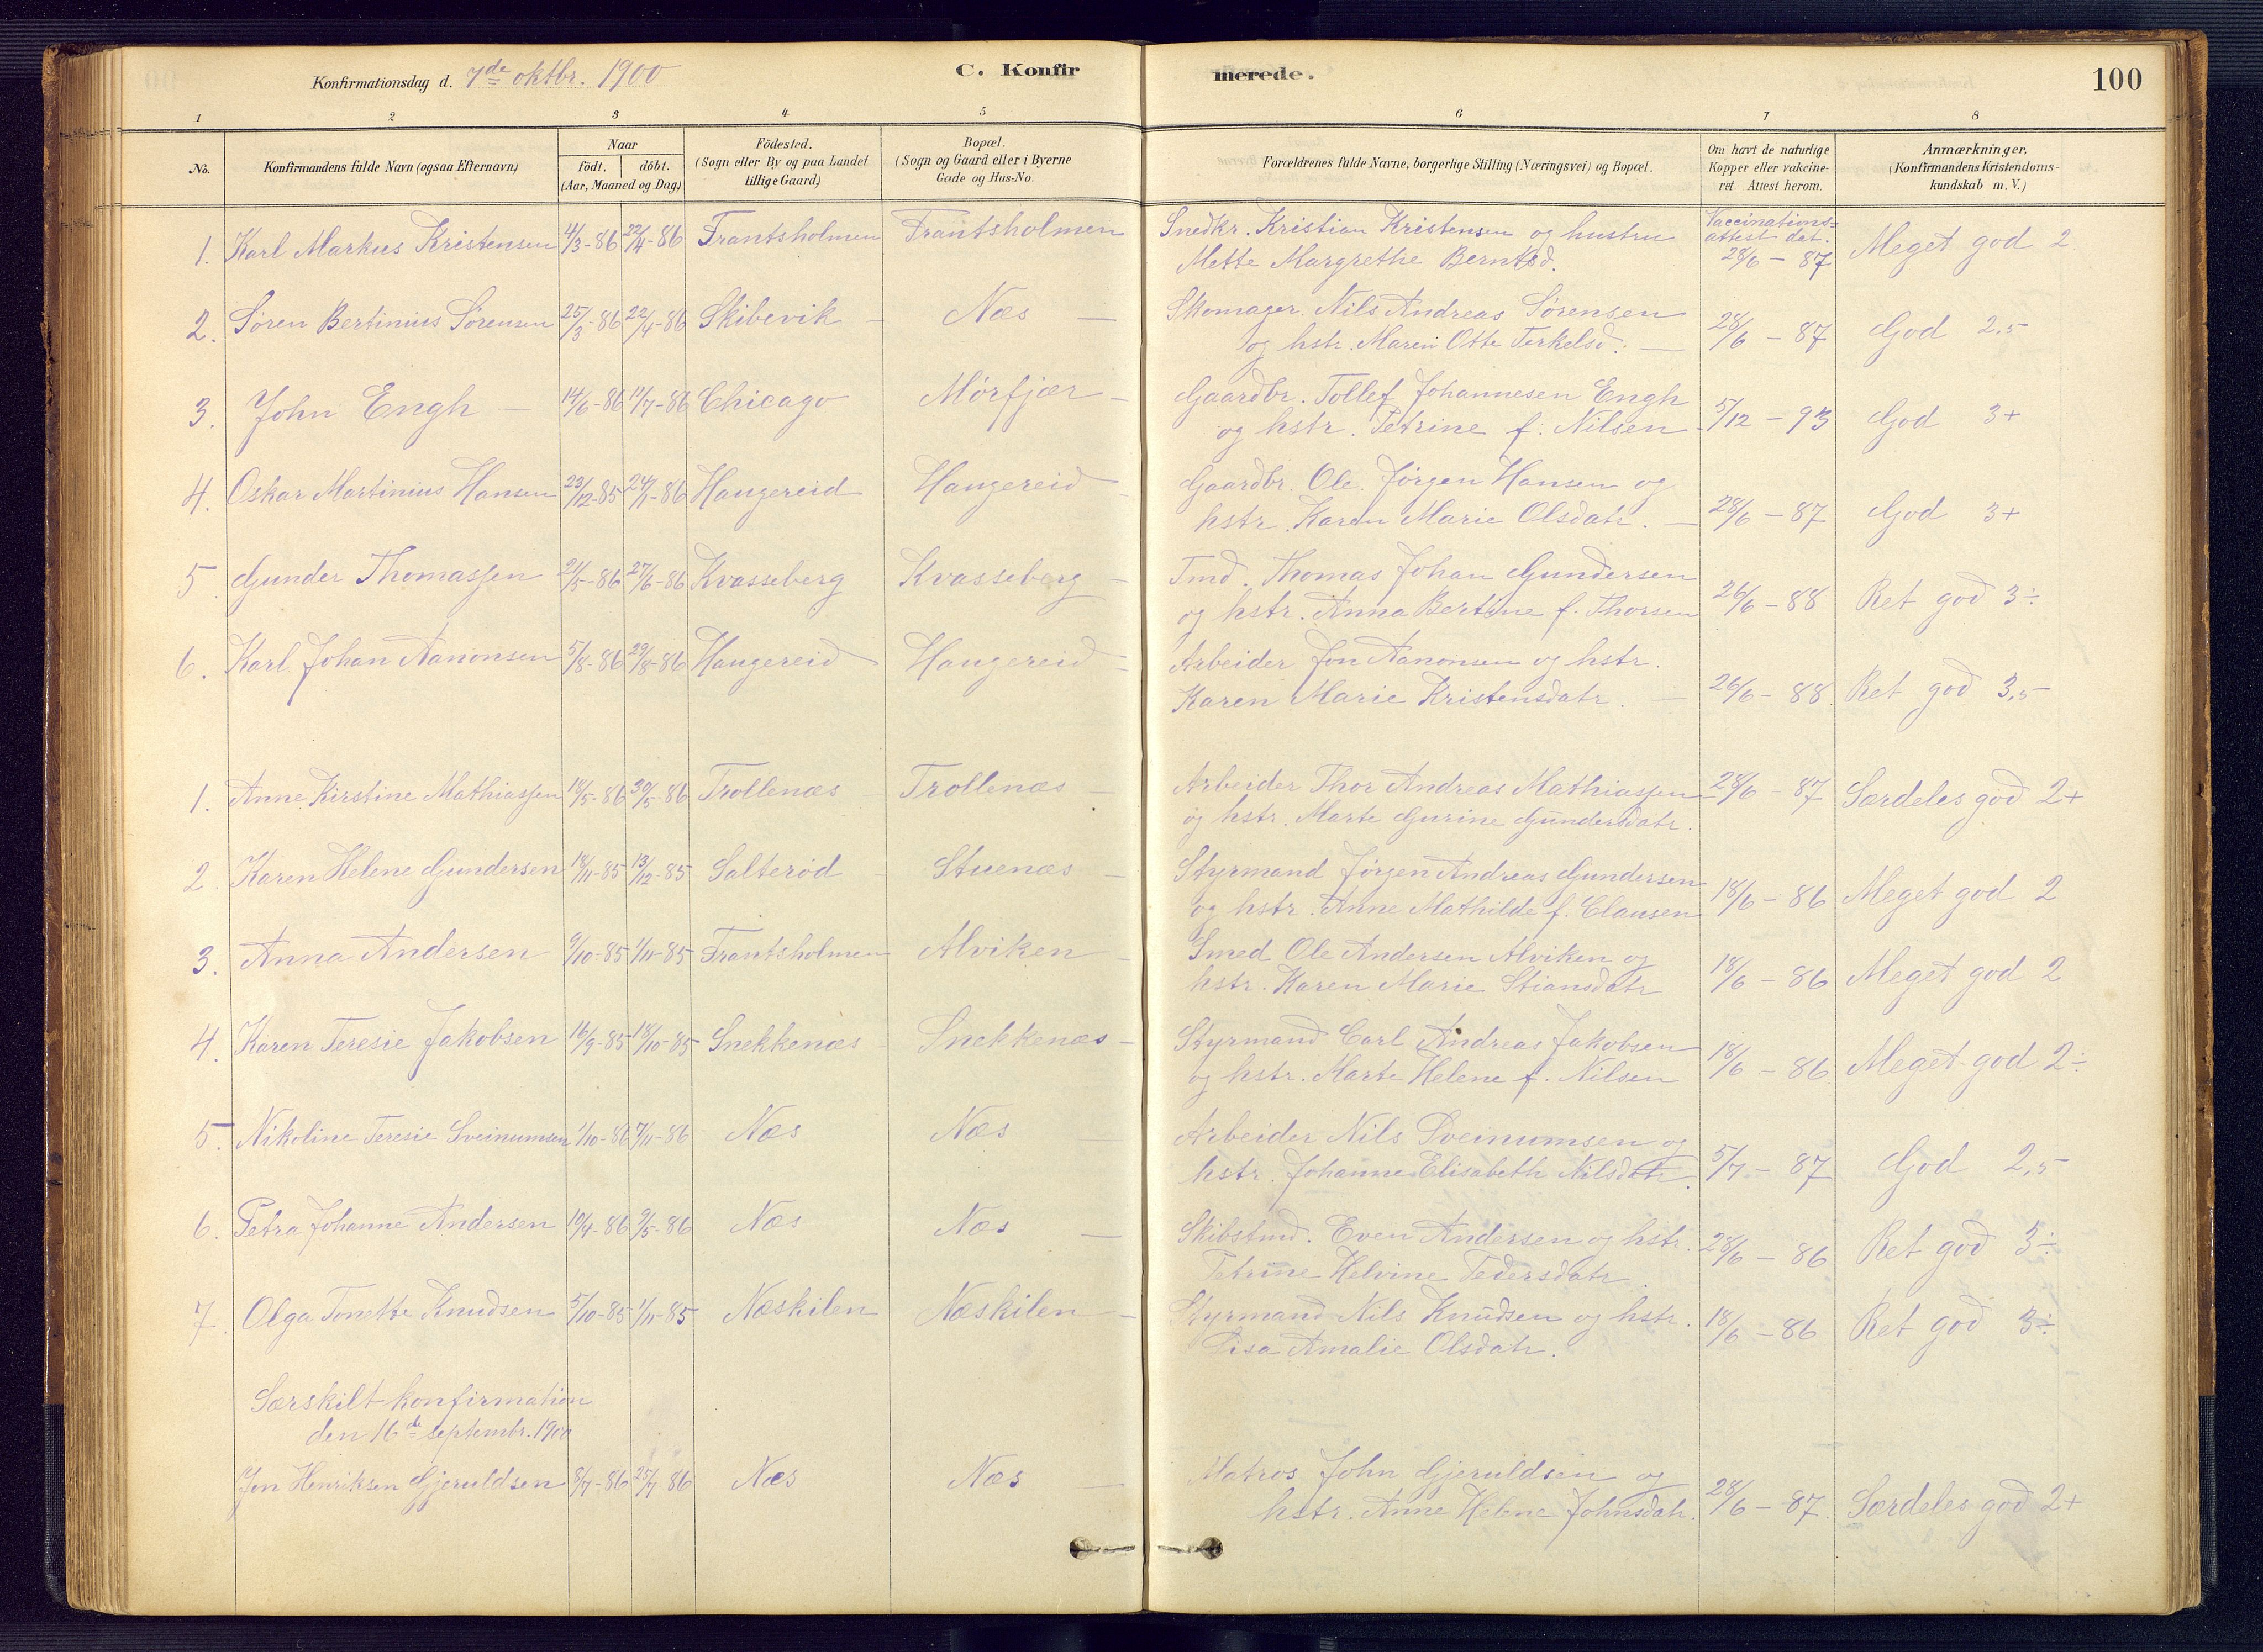 Konfirmationsdag d. 7de oktbr. 1900 C. Konfirmerede. 100
1 2 3 4 5 6 7 8
No. Konfirmandens fulde Navn (ogsaa Efternavn) Naar født. døbt. (Aar, Maaned og Dag) Födested. (Sogn eller By og paa Landet tillige Gaard) Bopæl. (Sogn og Gaard eller i Byerne Gade og Hus-No. Forældrenes fulde Navne, borgerlige Stilling (Næringsvei) og Bopæl. Om havt de naturlige Kopper eller vakcineret. Attest herom. Anmærkninger. (Konfirmandens Kristendomskundskab m. V.)
1. Karl Markus Kristensen 4/3-86 22/4-86 Frantsholmen Frantsholmen Snedkr. Kristian Kristensen og hustru Vaccinations= attest dat.
Mette Margrethe Berntsd. 28/6 - 87 Meget god 2
2. Søren Bertinius Sørensen 25/3-86 22/4-86 Skibevik - Næs - Skomager. Nils Andreas Sørensen
og hstr. Maren Otte Terkelsd. - 28/6 - 87 God 2,5
3. John Engh - 14/6-86 11/7-86 Chicago Mörfjær - Gaardbr. Tollef Johannesen Engh
og hstr. Petrine f. Nilsen 5/12 - 93 God 3+
4. Oskar Martinius Hansen 23/12-85 24/1-86 Haugereid Haugereid - Gaardbr. Ole Jørgen Hansen og
hstr. Karen Marie Olsdatr. - 28/6 - 87 God 3+
5. Gunder Thomassen 21/5-86 27/6-86 Kvasseberg Kvasseberg - Tmd. Thomas Johan Gundersen
og hstr. Anna Bertine f. Thorsen 26/6 - 88 Ret god 3÷
6. Karl Johan Aanonsen 5/8-86 29/8-86 Haugereid Haugereid - Arbeider Jon Aanonsen og hstr.
Karen Marie Kristensdatr. - 26/6 - 88 Ret god 3,5
1. Anne Kirstine Mathiassen 18/5-86 30/5-86 Trollenæs - Trollenæs - Arbeider Thor Andreas Mathiassen 28/6 - 87 Særdeles god 2+
og hstr. Marte Gurine Gundersdatr.
2. Karen Helene Gundersen 18/11-85 13/12-85 Salteröd - Stuenæs - Styrmand Jørgen Andreas Gundersen
og hstr. Anne Mathilde f. Clausen 18/6 - 86 Meget god 2
3. Anna Andersen 9/10-85 1/11-85 Frantsholmen Alviken - Smed Ole Andersen Alviken og
hstr. Karen Marie Stiansdatr 18/6 - 86 Meget god 2
4. Karen Teresie Jakobsen 16/9-85 18/10-85 Snekkenæs - Snekkenæs - Styrmand Carl Andreas Jakobsen
og hstr. Marte Helene f. Nilsen 18/6 - 86 Meget god 2÷
5. Nikoline Teresie Sveinumsen 1/10-86 7/11-86 Næs Næs - Arbeider Nils Sveinumsen og
hstr. Johanne Elisabeth Nilsdatr. 5/7 - 87 God 2,5
6. Petra Johanne Andersen 10/4-86 9/5-86 Næs Næs - Skibstmd. Even Andersen og hstr.
Petrine Helvine Pedersdatr. 28/6 - 86 Ret god 3÷
7. Olga Tonette Knudsen 5/10-85 1/11-85 Næskilen Næskilen - Styrmand Nils Knudsen og hstr.
Lisa Amalie Olsdatr. 18/6 - 86 Ret god 3÷
Særskilt konfirmation
den 16de septembr. 1900
Jon Henriksen Gjeruldsen 8/7-86 25/7 86 Næs Næs - Matros John Gjeruldsen og
hstr. Anne Helene Johnsdatr. 28/6 - 87. Særdeles god 2+